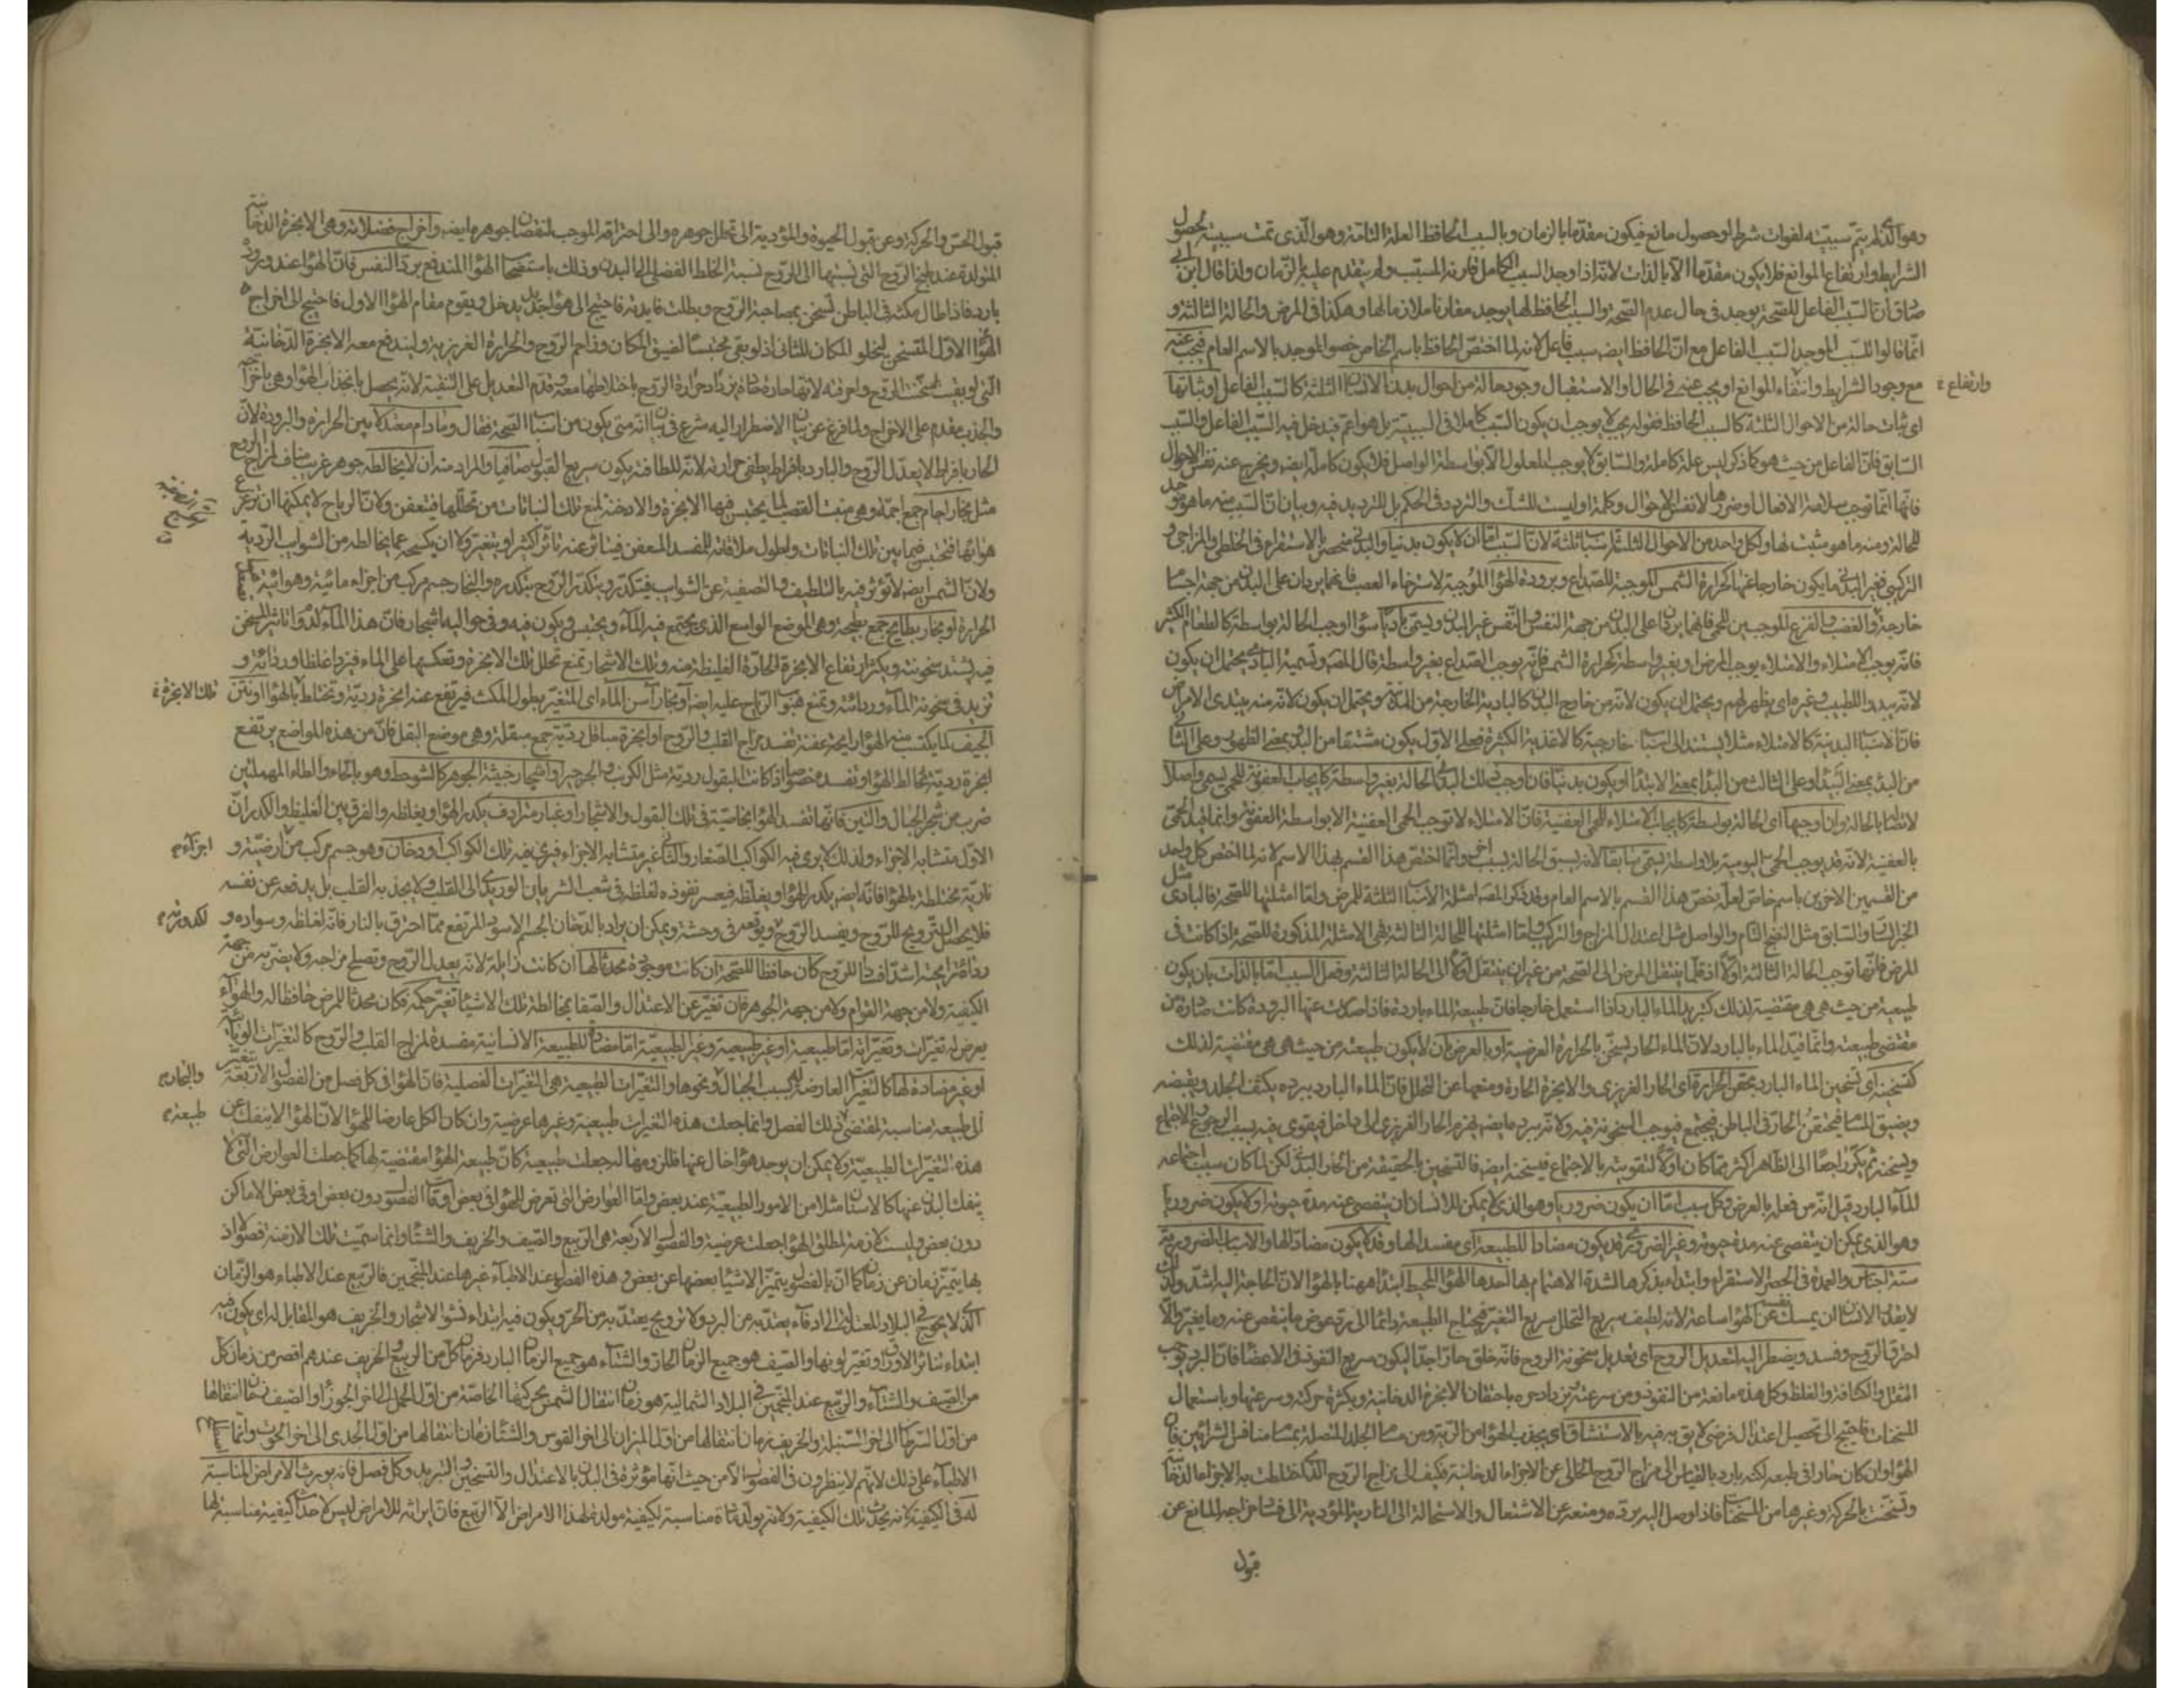 وهو الذى لم يتم سببيته لفوات شرط او حصول مانع فيكون مقدما بالزمان وبالسبب الحافظ العلة التامة وهو الذى تمت سببيته بحصول
الشرايط وارتفاع الموانع فلا يكون مقدما الا بالذات لانه اذا وجد السبب الكامل قارنه المسبب ولم يتقدم عليه بالزمان ولذا قال ابن ابى
صادق ان السبب الفاعل للصحة يوجد فى حال عدم الصحة والسبب الحافظ لها يوجد مقارنا ملازما لها وهكذا فى المرض والحالة الثالثة و
انما قالوا للسبب الموجد السبب الفاعل مع ان الحافظ ايضا سبب فاعل لانه لما اختص الحافظ باسم الخاص خصوا الموجد بالاسم العام فيجب عنه
مع وجود الشرايط وانتفاء الموانع او يجب عنه فى الحال او الاستقبال وجود حالة من احوال بدن الانسان الثلثة كالسبب الفاعل او ثباتها
وارتفاع
اى ثبات حالة من الاحوال الثلثة كالسبب الحافظ فقوله يجب لا يوجب ان يكون السبب كاملا فى السببية بل هو اعم فيدخل فيه السبب الفاعل والسبب
السابق فان الفاعل من حيث هو كما ذكر ليس علة كاملة والسابق لا يوجب المعلول الا بواسطة الواصل فلا يكون كاملة ايضا ويخرج عنه نفس الاحوال
فانها انما توجب سلامة الافعال او ضررها لا نفس الاحوال وكلمة او ليست للشك والتردد فى الحكم بل للترديد فيه وبيان ان السبب منه ما هو موجد
للحالة ومنه ما هو مثبت لها ولكل واحد من الاحوال الثلثة اسباب ثلثة لان السبب اما ان لا يكون بدنيا والبدنى منحصر بالاستقراء فى الخلطى والمزاجى و
التركيبى فغير البدنى ما يكون خارجا عنها كحرارة الشمس الموجبة للصداع وبرودة الهواء الموجبة لاسترخاء العصب فانهما يردان على البدن من جهة اجسام
خارجة والغضب والفزع الموجبين للحمى فانهما يردان على البدن من جهة النفس والنفس غير البدن ويسمى باديا سواء اوجب الحالة بواسطة كالطعام الكثير
فانه يوجب الامتلاء والامتلاء يوجب المرض او بغير واسطة كحرارة الشمس فانه يوجب الصداع بغير واسطة قال المص وتسمية البادى يحتمل ان يكون
لانه يبدو للطبيب وغيره اى يظهر لهم ويحتمل ان يكون لانه من خارج البدن كالبادية الخارجة من المدينة ويحتمل ان يكون لانه منه يبتدئ الامراض
فان الاسباب البدنية كالامتلاء مثلا يستند الى اسباب خارجية كالاغذية الكثيرة فعلى الاول يكون مشتقا من البدو بمعنى الظهور وعلى الثانى
من البدو بمعنى البيداء وعلى الثالث من البدا بمعنى الابتداء او يكون بدنيا فان اوجب ذلك البدنى الحالة بغير واسطة كايجاب العفونة للحمى يسمى واصلا
لاتصاله بالحالة وان اوجبها اى الحالة بواسطة كايجاب الامتلاء للحمى العفنية فان الامتلاء لا توجب الحمى العفنية الا بواسطة العفونة وانما قيد الحمى
بالعفنية لانه قد يوجب الحمى اليومية بلا واسطة يسمى سابقا لانه يسبق الحالة بسبب اخر وانما اختص هذا القسم بهذا الاسم لانه لما اختص كل واحد
من القسمين الاخرين باسم خاص لعلة يخص هذا القسم بالاسم العام وقد ذكر المص امثلة الاسباب الثلثة للمرض واما امثلتها للصحة فالبادى مثل
والسابق مثل النضج التام والواصل مثل اعتدال المزاج والتركيب واما امثلتها للحالة الثالثة فهى الامثلة المذكورة للصحة اذا كانت فى
المرض فانها توجب الحالة الثالثة اولا اذ قلما ينتقل المرض الى الصحة من غير ان ينتقل اولا الى الحالة الثالثة وفعل السبب اما بالذات بان يكون
طبيعته من حيث هى هى مقتضية لذلك كتبريد الماء البارد اذا استعمل خارجا فان طبيعة الماء باردة فاذا صدرت عنها البرودة كانت صادرة من
مقتضى طبيعته وانما قيد الماء بالبارد لان الماء الحار يسخن بالحرارة العرضية او بالعرض بان لا يكون طبيعته من حيث هى هى مقتضية لذلك
كتسخينه اى تسخين الماء البارد بحقن الحرارة اى الحار الغريزى والابخرة الحارة ومنعها عن التحلل فان الماء البارد ببرده يكثف الجلد ويقبضه
ويضيق المسام فيحتقن الحار فى الباطن فيجتمع فيوجب السخونة فيه ولانه ببرد ما يهزم الحار الغريزى الى داخل فيقوى فيه بسبب الرجوع الاجتماع
ويسخنه ثم يكر راجعا الى الظاهر اكثر مما كان اولا لتقويته بالاجتماع فيسخنه ايضا فالتسخين بالحقيقة من الحار البدنى لكن لما كان سبب اجتماعه
الماء البارد قيل انه من فعله بالعرض وكل سبب اما ان يكون ضروريا وهو الذى لا يمكن للانسان ان يتفصى عنه مدة حيوته او لا يكون ضروريا
وهو الذى يمكن ان يتفصى عنه مدة حيوته وغير الضرورى قد يكون مضادا للطبيعة اى مفسدا لها وقد لا يكون مضادا لها والاسباب الضرورية
ستة اجناس والعمدة فى الحصر الاستقراء وابتداء بذكرها لشدة الاهتمام بها احدها الهواء المحيط ابتدا ههنا بالهواء لان الحاجة اليه اشد ولذلك
لا يقدر الانسان ان يمسك عن الهواء ساعة لانه لطيف سريع التحلل سريع التغير فيحتاج الطبيعة دائما الى رد عوض ما ينقص عنه وما يغير والا
احترق الروح وفسد ويضطر اليه لتعديل الروح اى تعديل سخونة الروح فانه خلق حارا جدا ليكون سريع النفوذ فى الاعضاء فان البرد يوجب
الثقل والكثافة والغلظ وكل هذه مانعة من النفوذ ومن سرعته يزداد حره باحتقان الابخرة الدخانية وبكثرة حركته وسرعتها وباستعمال
المسخنات فاحتيج الى تحصيل اعتدال عرضى لايق به فيه بالاستنشاق اى بجذب الهواء من الرية ومن مسام الجلد المتصلة بمسام منافس الشرائين فان
الهواء وان كان حارا فى طبعه لكنه بارد بالقياس الى مزاج الروح الخالى عن الاجزاء الدخانية فكيف الى مزاج الروح الذى اختلطت به الاجزاء الدخانية
وتسخنت بالحركة وغيرها من المسخنات فاذا وصل اليه برده ومنعه عن الاشتعال والاستحالة الى النارية المؤدية الى فساد مزاجه المانع عن
قبول
قبول الحس والحركة وعن قبول الحيوة والمؤدية الى تحلل جوهره والى احتراقه الموجب لنقصان جوهره ايضا واخراج فضلاته وهى الابخرة الدخانية
المتولدة عند طبخ الروح التى نسبتها الى الروح نسبة الخلط الفضلى الى البدن وذلك باستصحاب الهواء المندفع برد النفس فان الهواء عند وروده
بارد فاذا طال مكثه فى الباطن تسخن بمصاحبة الروح وبطلت فايدته فاحتيج الى هواء جديد يدخل ويقوم مقام الهواء الاول فاحتيج الى اخراج
الهواء الاول المتسخن ليخلو المكان للثانى اذ لو بقى محتبسا لضيق المكان وزاحم الروح والحرارة الغريزية وليندفع معه الابخرة الدخانية
التى لو بقيت لسخنت الروح واحرقته لانها حارة حادة يزداد حرارة الروح باختلاطها معه وقدم التعديل على التنقية لانه يحصل بانجذاب الهواء وهى باخراجه
والجذب مقدم على الاخراج ولما فرغ عن بيان الاضطرار اليه شرع فى بيان انه متى يكون من اسباب الصحة فقال وما دام معتدلا بين الحرارة والبرودة لان
الحار بافراط لا يعدل الروح والبارد بافراط يطفئ حرارته لانه للطافته يكون سريع القبول صافيا والمراد منه ان لا يخالطه جوهر غريب مناف لمزاج الروح
مثل بخار اجام جمع اجمة وهى منبت القصب لما يحتبس فيها الابخرة والادخنة لمنع تلك النباتات من تحللها فيتعفن ولان الرياح لا يمكنها ان تزعزع
هوائها فتحتبس فيما بين تلك النباتات ولطول ملاقاته للمفسد المعفن فيتاثر عنه تاثرا كثيرا ويتغير ولا ان يكسحه عما يخالطه من الشوايب الردية
ولان الشمس ايضا لا تؤثر فيه بالتلطيف والتصفية عن الشوايب فيتكدر ويتكدر الروح بتكدره والبخار جسم مركب من اجزاء مائية وهوائية
الحرارة او بخار بطايح جمع بطيحة وهى الموضع الواسع الذى يجتمع فيه الماء ويحتبس ويكون فيه وفى حواليه اشجار فان هذا الماء لدوام تاثير المسخن
فيه يشتد سخونته ويكثر ارتفاع الابخرة الحارة الغليظة منه وتلك الاشجار تمنع تحلل تلك الابخرة وتعكسها على الماء فيزداد غلظا ورداءة و
تزيد فى سخونة الماء ورداءته وتمنع هبوب الرياح عليه ايضا او بخار آسن الماء اى المتغير بطول المكث فيرتفع عنه ابخرة ردية وتختلط بالهواء او نتن
تلك الابخرة
الجيف لما يكتسب منه الهواء رايحة عفنة تفسد مزاج القلب والروح او ابخرة مباقل ردية جمع مبقلة وهى موضع البقل فان من هذه المواضع يرتفع
ابخرة ردية تخالط الهواء وتفسده خصوصا اذا كانت البقول ردية مثل الكرنب والجرجير واشجار خبيثة الجوهر كالشوحط وهو بالحاء والطاء المهملتين
ضرب من شجر الجبال والتين فانها تفسد الهواء بخاصية فى تلك البقول والاشجار او غبار مترادف يكدر الهواء ويغلظه والفرق بين الغليظ والكدر ان
الاول متشابه الاجزاء ولذلك لا يرى فيه الكواكب الصغار والثانى غير متشابه الاجزاء فيرى فيه تلك الكواكب او دخان وهو جسم مركب من ارضية و
اجزاء
نارية مختلطة بالهواء فانه ايضا يكدر الهواء ويغلظه فيعسر نفوذه لغلظه فى شعب الشريان الوريدى الى القلب ولا يجذبه القلب بل يدفعه عن نفسه
فلا يحصل الترويح للروح ويفسد الروح ويوقعه فى وحشة ويمكن ان يراد بالدخان الجسم الاسود المرتفع مما احترق بالنار فانه لغلظه وسواده و
لكدورته
رداءة رايحته اشد افسادا للروح كان حافظا للصحة ان كانت موجودة ومحدثا لها ان كانت زايلة لانه يعدل الروح وتصلح مزاجه ولا يضر به من جهة
الكيفية ولا من جهة القوام ولا من جهة الجوهر فان تغير عن الاعتدال والصفا بمخالطة تلك الاشياء تغير حكمه فكان محدثا للمرض حافظا له والهواء
يعرض له تغيرات وتغيراته اما طبيعية او غير طبيعية وغير الطبيعية اما مضادة للطبيعة الانسانية مفسدة لمزاج القلب والروح كالتغيرات الوبائية
او غير مضادة لها كالتغيرات العارضة له بسبب الجبال ونحوها والتغيرات الطبيعية هى التغيرات الفصلية فان الهواء فى كل فصل من الفصول الاربعة يتغير
والبحار
الى طبيعة مناسبة لمقتضى ذلك الفصل وانما جعلت هذه التغيرات طبيعية وغيرها عرضية وان كان الكل عارضا للهواء لان الهواء لا ينفك عن
طبيعة
هذه التغيرات الطبيعية ولا يمكن ان يوجد هواء خال عنها فللزومها له جعلت طبيعية كان طبيعة الهواء مقتضية لها كما جعلت العوارض التى لا
ينفك البدن عنها كالاسنان مثلا من الامور الطبيعية عند بعض واما العوارض التى تعرض للهواء فى بعض اوقات الفصول دون بعض او فى بعض الاماكن
دون بعض وليست لازمة لمطلق الهواء جعلت عرضية والفصول الاربعة هى الربيع والصيف والخريف والشتاء وانما سميت تلك الازمنة فصولا اذ
بها يتميز زمان عن زمان كما ان بالفصل يتميز الاشياء بعضها عن بعض وهذه الفصول عند الاطباء غيرها عند المنجمين فالربيع عند الاطباء هو الزمان
الذى لا يحوج فى البلاد المعتدلة الى ادفاء يعتد به من البرد ولا ترويح يعتد به من الحر ويكون فيه ابتداء نشو الاشجار والخريف هو المقابل له اى يكون فيه
ابتداء تناثر الاوراق وتغير لونها والصيف هو جميع الزمان الحار والشتاء هو جميع الزمان البارد فزمان كل من الربيع والخريف عندهم اقصر من زمان كل
من الصيف والشتاء والربيع عند المنجمين فى البلاد الشمالية هو زمان انتقال الشمس بحركتها الخاصة من اول الحمل الى اخر الجوزاء والصيف زمان انتقالها
من اول السرطان الى اخر السنبلة والخريف زمان انتقالها من اول الميزان الى اخر القوس والشتاء زمان انتقالها من اول الجدى الى اخر الحوت وانما
الاطباء على ذلك لانهم لا ينظرون فى الفصول الا من حيث انها مؤثرة فى البدن بالاعتدال والتسخين والتبريد وكل فصل فانه يورث الامراض المناسبة
له فى الكيفية لانه يحدث تلك الكيفية ولانه يولد مادة مناسبة لكيفيته مولدة لهذا الامراض الا الربيع فان ايراثه للامراض ليس لاحداث كيفية مناسبة لها